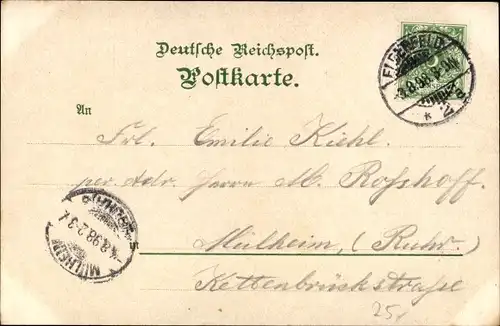 Deutsche Reichspost.
Postkarte.
An
Frl. Emilie Kiehl.
per Adr. Herrn M. Roßhoff.
Mülheim, (Ruhr.)
Kettenbrückstraße
25
ELBERFELD
MÜLHEIM
(RUHR)